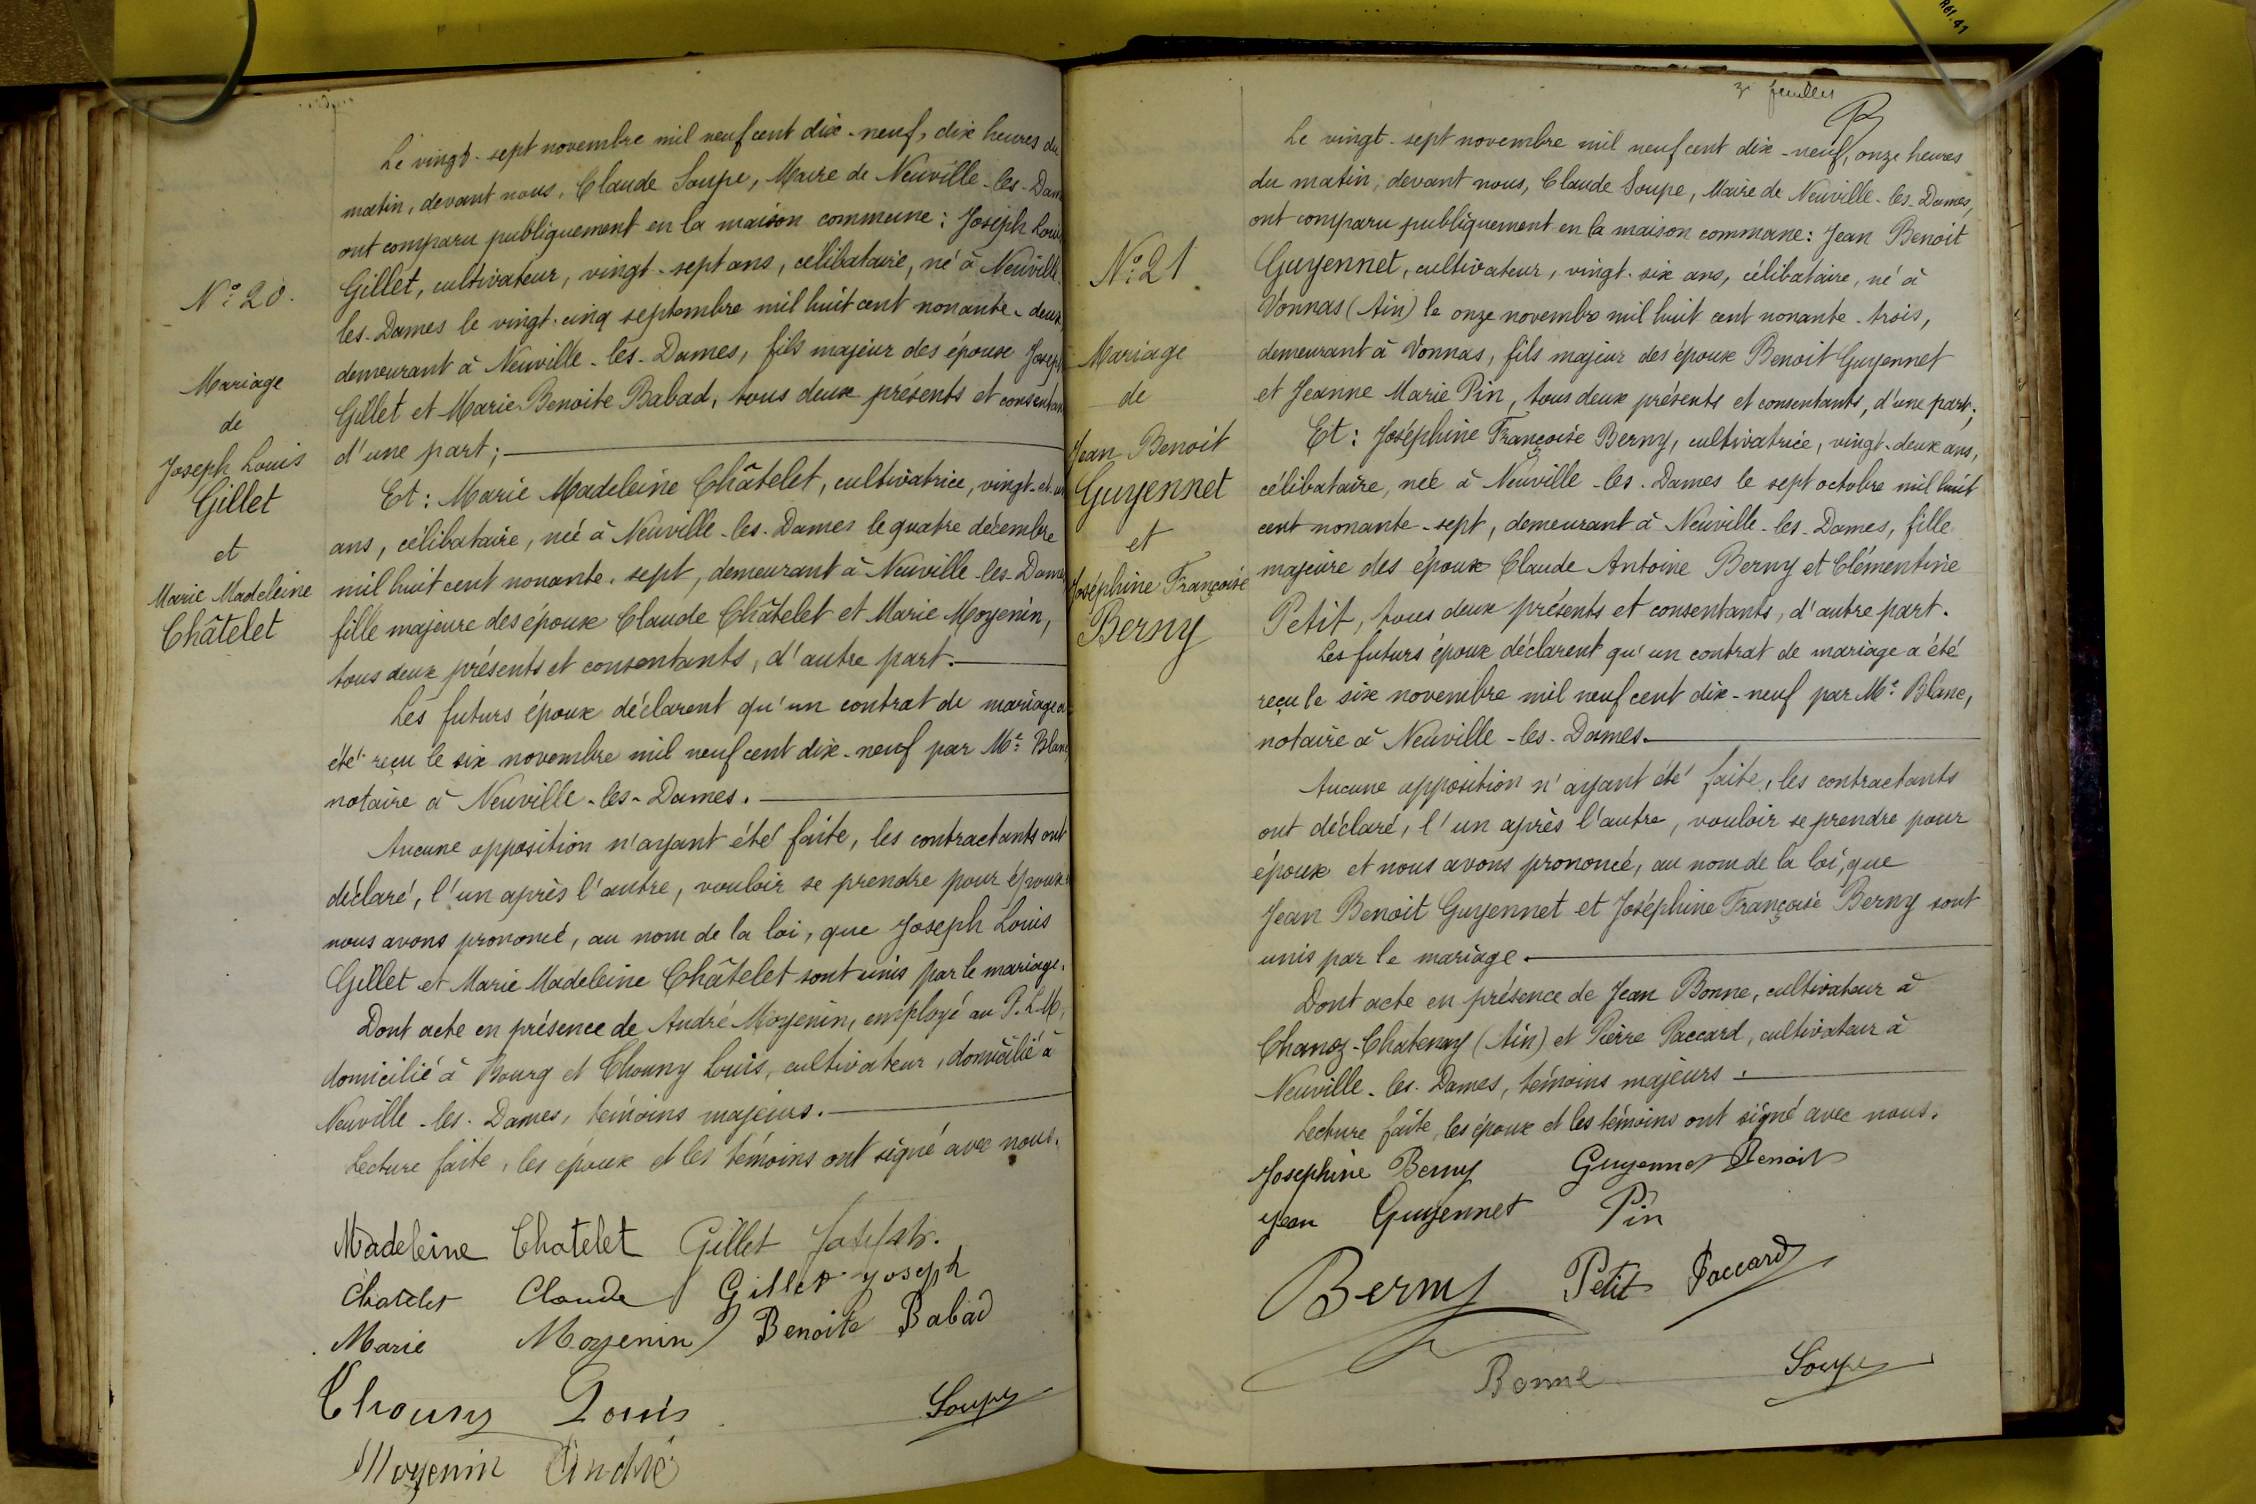 Le vingt-sept novembre mil neuf cent dix-neuf, dix heures du
matin, devant nous, Claude Soupe, Maire de Neuville-les-Dam
ont comparu publiquement en la maison commune: Joseph Loui
Gillet, cultivateur, vingt-sept ans, célibataire, né à Neuville
les-Dames le vingt-cinq septembre mil huit cent nonante-deux
demeurant à Neuville-les-Dames, fils majeur des époux Joseph
Gillet et Marie Benoite Babad, tous deux présents et consentan
d'une part;
Et: Marie Madeleine Châtelet, cultivatrice, vingt-et-un
ans, célibataire, née à Neuville-les-Dames le quatre décembre
mil huit cent nonante-sept, demeurant à Neuville-les-Dames
fille majeure des époux Claude Châtelet et Marie Moyenin,
tous deux présents et consentants, d'autre part.
Les futurs époux déclarent qu'un contrat de mariage a
été reçu le six novembre mil neuf cent dix-neuf par Me Blanc
notaire à Neuville-les-Dames.
Aucune opposition n'ayant été faite, les contractants ont
déclaré, l'un après l'autre, vouloir se prendre pour époux
nous avons prononcé, au nom de la loi, que Joseph Louis
Gillet et Marie Madeleine Châtelet sont unis par le mariage.
Dont acte en présence de André Moyenin, employé au P.L.M,
domicilié à Bourg et Chouny Louis, cultivateur, domicilié à
Neuville-les-Dames, témoins majeurs.
Lecture faite, les époux et les témoins ont signé avec nous.
N° 20.
Mariage
de
Joseph Louis
Gillet
et
Marie Madeleine
Châtelet
Madeleine Chatelet Gillet Joseph.
Chatelet Claude Gillet Joseph
Marie Moyenin Benoite Babad
Chouny Louis Soupe
Moyenin André
Réf. 41
3e feuillet
Le vingt-sept novembre mil neuf cent dix-neuf, onze heures
du matin, devant nous, Claude Soupe, Maire de Neuville-les-Dames,
ont comparu publiquement en la maison commune: Jean Benoit
Guyennet, cultivateur, vingt-six ans, célibataire, né à
Vonnas (Ain) le onze novembre mil huit cent nonante-trois,
demeurant à Vonnas, fils majeur des époux Benoit Guyennet
et Jeanne Marie Pin, tous deux présents et consentants, d'une part;
Et: Joséphine Françoise Berny, cultivatrice, vingt-deux ans,
célibataire, née à Neuville-les-Dames le sept octobre mil huit
cent nonante-sept, demeurant à Neuville-les-Dames, fille
majeure des époux Claude Antoine Berny et Clémentine
Petit, tous deux présents et consentants, d'autre part.
Les futurs époux déclarent qu'un contrat de mariage a été
reçu le six novembre mil neuf cent dix-neuf par Me Blanc,
notaire à Neuville-les-Dames.
Aucune opposition n'ayant été faite, les contractants
ont déclaré, l'un après l'autre, vouloir se prendre pour
époux et nous avons prononcé, au nom de la loi, que
Jean Benoit Guyennet et Joséphine Françoise Berny sont
unis par le mariage.
Dont acte en présence de Jean Bonne, cultivateur à
Chanoz-Chatenay (Ain) et Pierre Paccard, cultivateur à
Neuville-les-Dames, témoins majeurs.
Lecture faite, les époux et les témoins ont signé avec nous.
N° 21
Mariage
de
Jean Benoit
Guyennet
et
Joséphine Françoise
Berny
Josephine Berny Guyennet Benoit
Jean Guyennet Pin
Berny Petit Paccard
Bonne Soupe